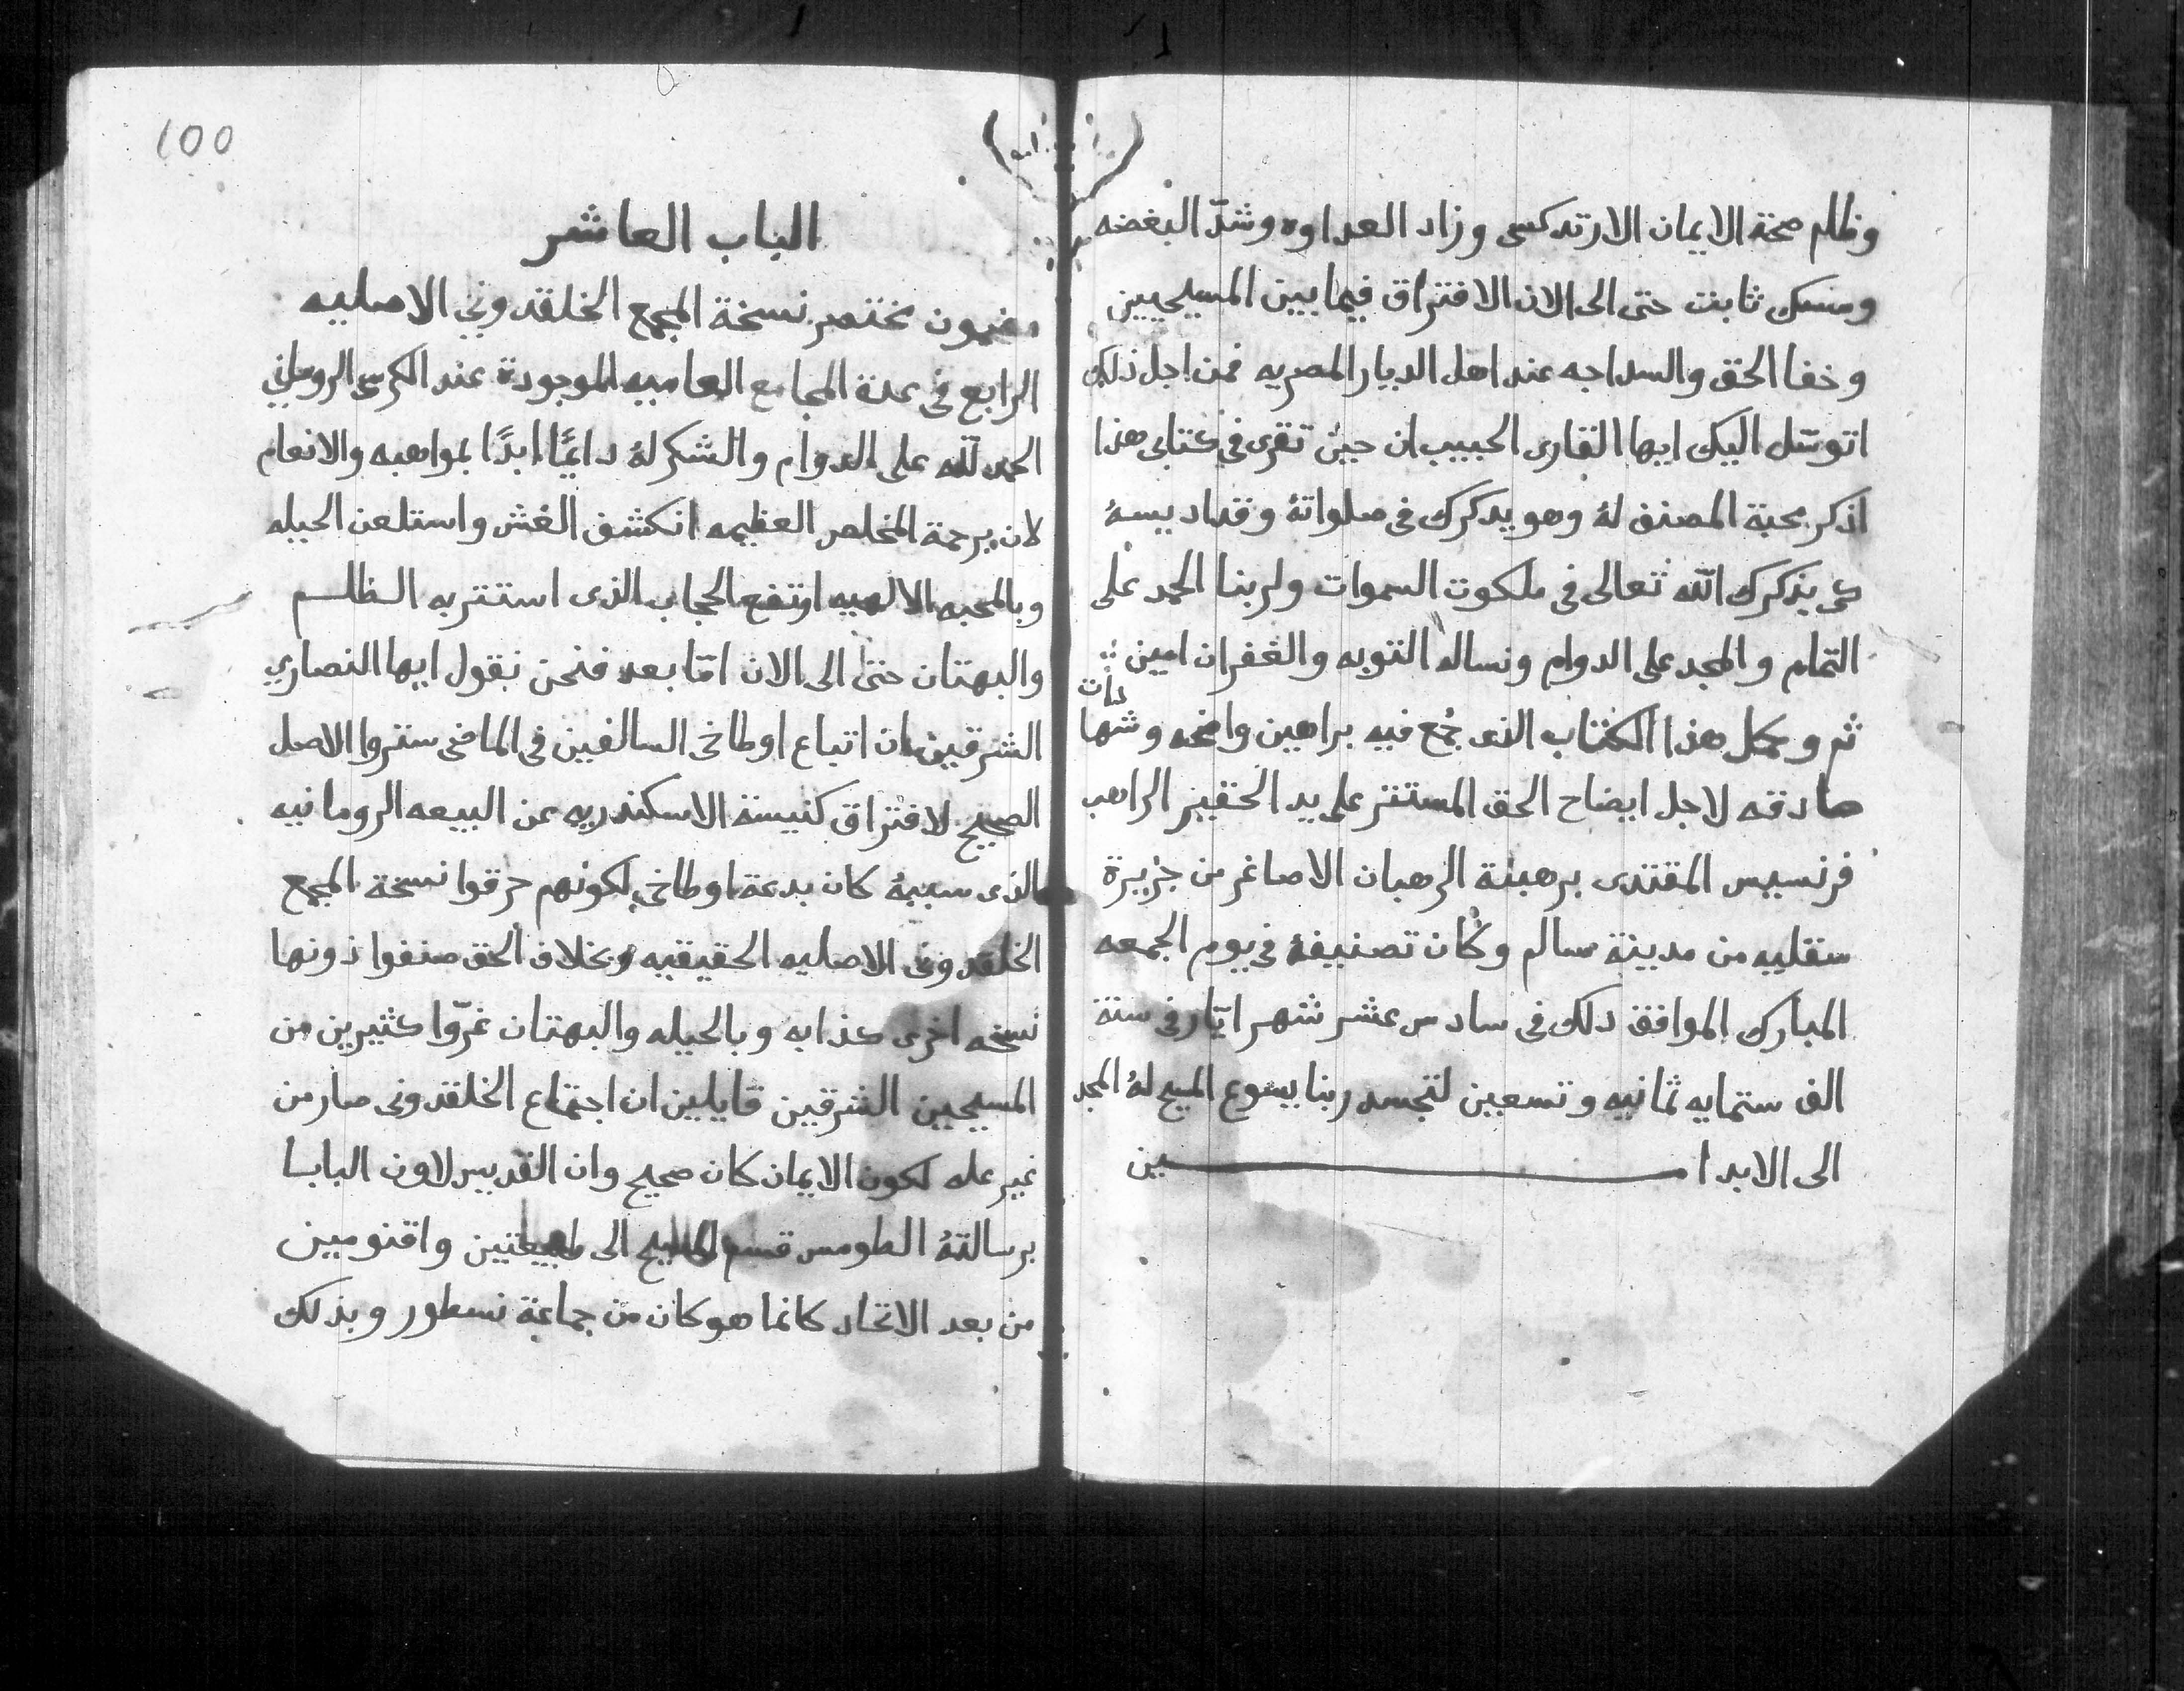 وظلم صحة الايمان الارتدكسى وزاد العداوه وشدّ البغضه
ومسك ثابت حتى الى الان الافتراق فيما بين المسيحيين
وخفا الحق والسداجه عند اهل الديار المصريه فمن اجل ذلك
اتوسّل اليك ايها القارى الحبيب ان حين تقرى فى كتابى هذا
اذكر محبة المصنف لهُ وهو يدكرك فى صلواتهُ وقداديسهُ
كى يذكرك الله تعالى فى ملكوت السموات ولربنا الحمد على
التمام والمجد على الدوام ونساله التوبه والغفران امين
ثم وكمل هذا الكتاب الذى جُمع فيه براهين واضحه وشهادات
صادقه لاجل ايضاح الحق المستتر على يد الحقير الراهب
فرنسيس المقتدى برهبنة الرهبان الاصاغر من جزيرة
سقليه من مدينة سالم وكان تصنيفهُ فى يوم الجمعه
المبارك الموافق دلك فى سادس عشر شهر ايّار فى سنة
الف ستمايه ثمانيه وتسعين لتجسد ربنا يسوع المسيح لهُ المجد
الى الابد امين
100
الباب العاشر
مضمون مختصر نسخة المجمع الخلقدونى الاصليه
الرابع فى عدة المجامع العاميه الموجودة عند الكرسى الرومانى
الحمد لله على الدوام والشكر لهُ دايمًا ابدًا بمواهبه والانعام
لان برحمة المخلص العظيمه انكشف الغش واستلعن الحيله
وبالمحبه الالهيه ارتفع الحجاب الذى استتر به الظلم
والبهتان حتى الى الان امّا بعد فنحن نقول ايها النصارى
الشرقيين ان اتباع اوطاخى السالفين فى الماضى ستروا الاصل
الصحيح لافتراق كنيسة الاسكندريه عن البيعه الرومانيه
الذى سببهُ كان بدعة اوطاخى لكونهم حرقوا نسخة المجمع
الخلقدونى الاصليه الحقيقيه وبخلاف الحق صنفوا دونها
نسخه اخرى كذابه وبالحيله والبهتان غرّوا كثيرين من
المسيحيين الشرقيين قايلين ان اجتماع الخلقدونى صار من
غير عله لكون الايمان كان صحيح وان القديس لاون البابا
برسالتهُ الطومس قسم المسيح الى طبيعتين واقنومين
من بعد الاتحاد كانما هو كان من جماعة نسطور وبذلك